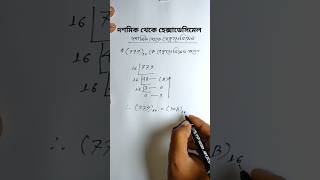 দশমিক থেকে হেক্সাডেসিমেল
দশমিক থেকে হেক্সাডেসিমেল
(779)₁₀ কে হেক্সাডেসিমেল
16 779
16 48 — (B)
16 3 — 0
0 — 3
∴ (779)₁₀ = (30B)₁₆
∴ (77
B)₁₆